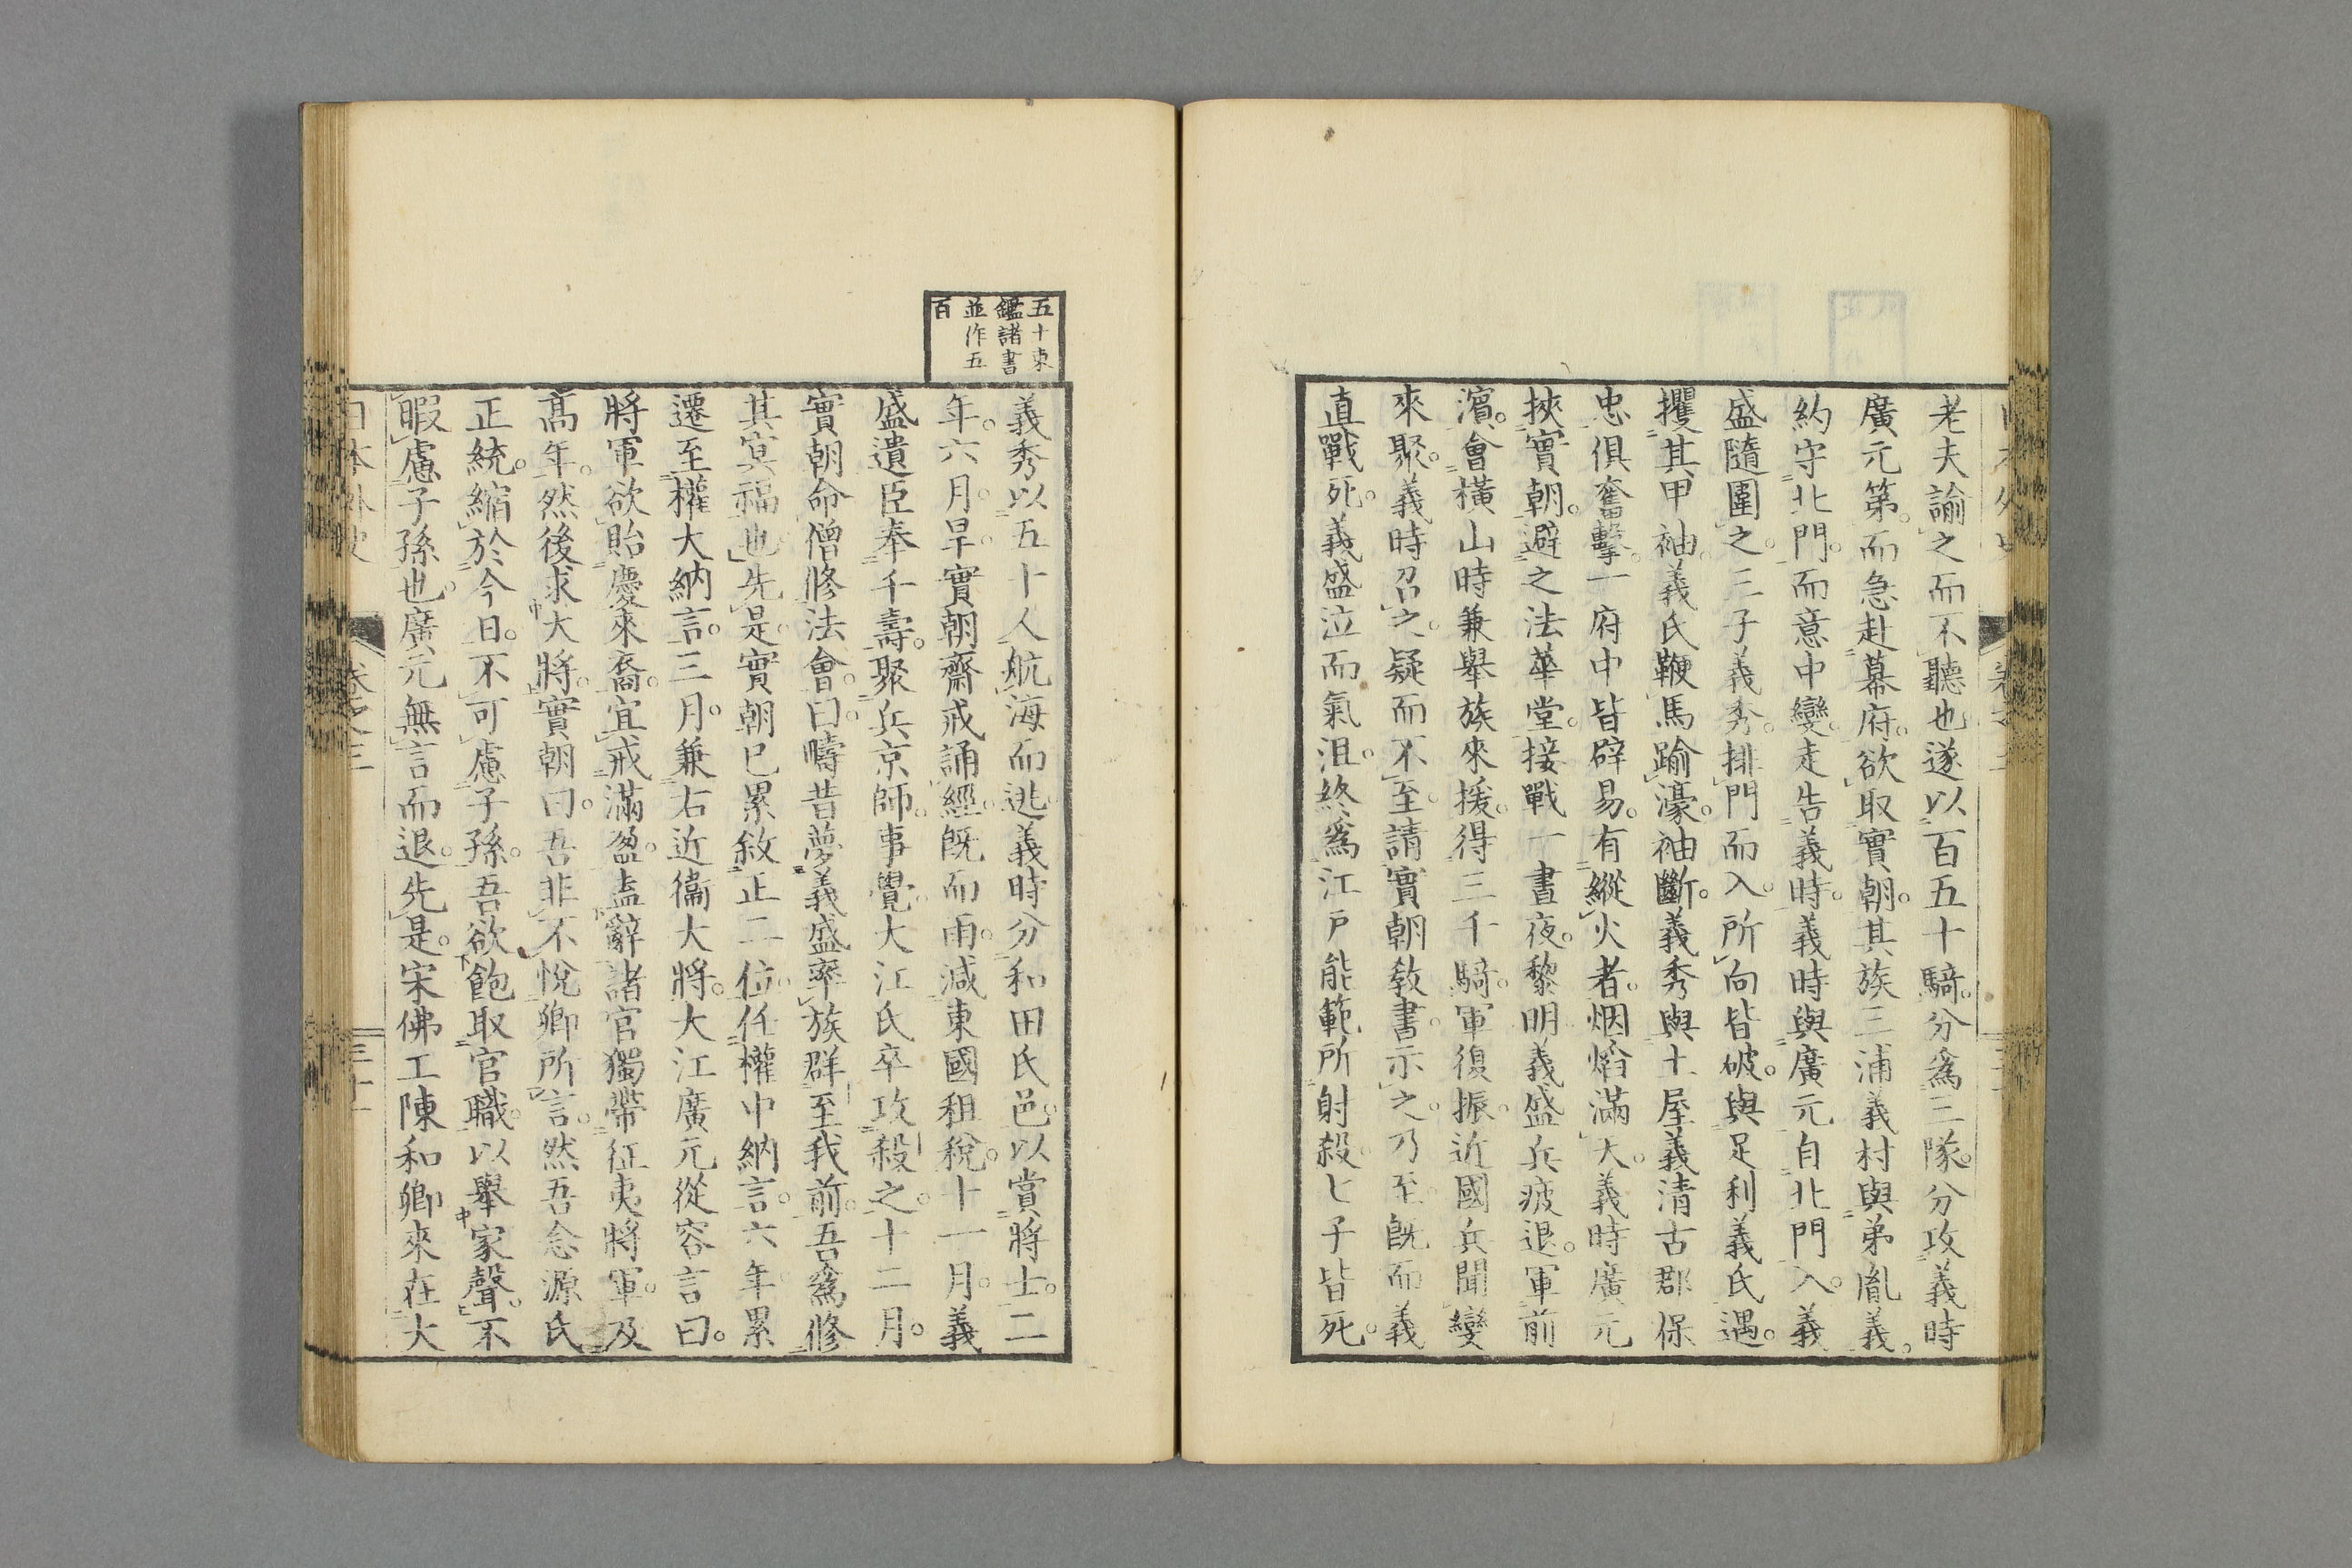 老夫諭之而不聽也遂以百五十騎。分爲三隊。分攻義時
廣元第。而急赴幕府。欲取實朝。其族三浦義村與弟胤義。
約守北門。而意中變。走告義時。義時與廣元自北門入。義
盛隨圍之。三子義秀。排門而入。所向皆破。與足利義氏遇。
攫其甲袖。義氏鞭馬踰濠。袖斷。義秀與土屋義清古郡保
忠俱奮擊。一府中皆辟易。有縱火者。烟焰滿天。義時廣元
挾實朝。避之法華堂。接戰一晝夜。黎明義盛兵疲退。軍前
濱。會横山時兼舉族來援。得三千騎。軍復振。近國兵聞變
來聚。義時召之。疑而不至。請實朝教書。示之。乃至。既而義
直戰死。義盛泣而氣沮。終爲江戸能範所射殺。七子皆死。
五十東
鑑諸書
並作五
百
義秀以五十人航海而逃。義時分和田氏邑。以賞將士。二
年。六月。旱。實朝齋戒誦經。既而雨。減東國租稅。十一月。義
盛遺臣奉千壽。聚兵京師。事覺。大江氏卒攻殺之。十二月。
實朝命僧修法會。曰。疇昔夢義盛率族群至我前。吾爲修
其冥福也。先是。實朝已累敘正二位任權中納言。六年累
遷至權大納言。三月。兼右近衞大將。大江廣元從容言曰。
將軍欲貽慶來裔。宜戒滿盈。盍辭諸官獨帶征夷將軍。及
高年。然後求大將。實朝曰。吾非不悅卿所言。然吾念源氏
正統。縮於今日。不可慮子孫。吾欲飽取官職。以舉家聲。不
暇慮子孫也。廣元無言而退。先是。宋佛工陳和卿來在大
日本外史
卷之三
三十一